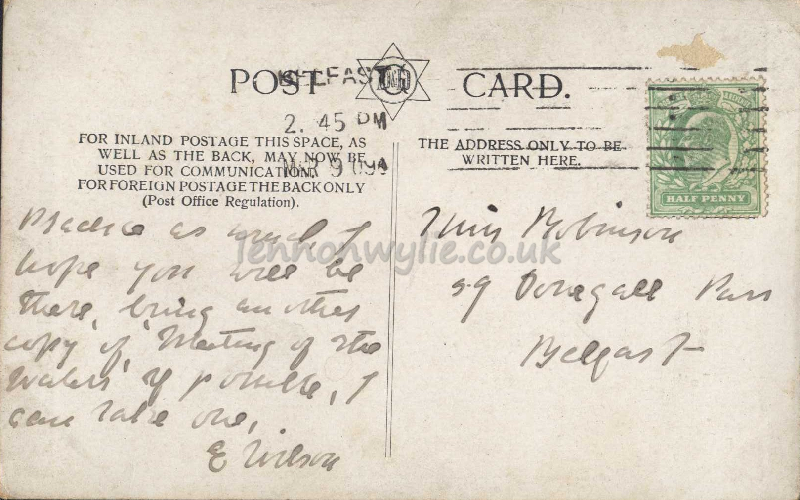 POST CARD.
BELFAST
2. 45 PM
MAR 9 09
FOR INLAND POSTAGE THIS SPACE, AS
WELL AS THE BACK, MAY NOW BE
USED FOR COMMUNICATION.
FOR FOREIGN POSTAGE THE BACK ONLY
(Post Office Regulation).
THE ADDRESS ONLY TO BE
WRITTEN HERE.
HALF PENNY
jennonwylie.co.uk
Practice as usual I
hope you will be
there, bring another
copy of "Meeting of the
Waters" if possible, I
can take one,
E Wilson
Miss Robinson
59 Donegall Pass
Belfast